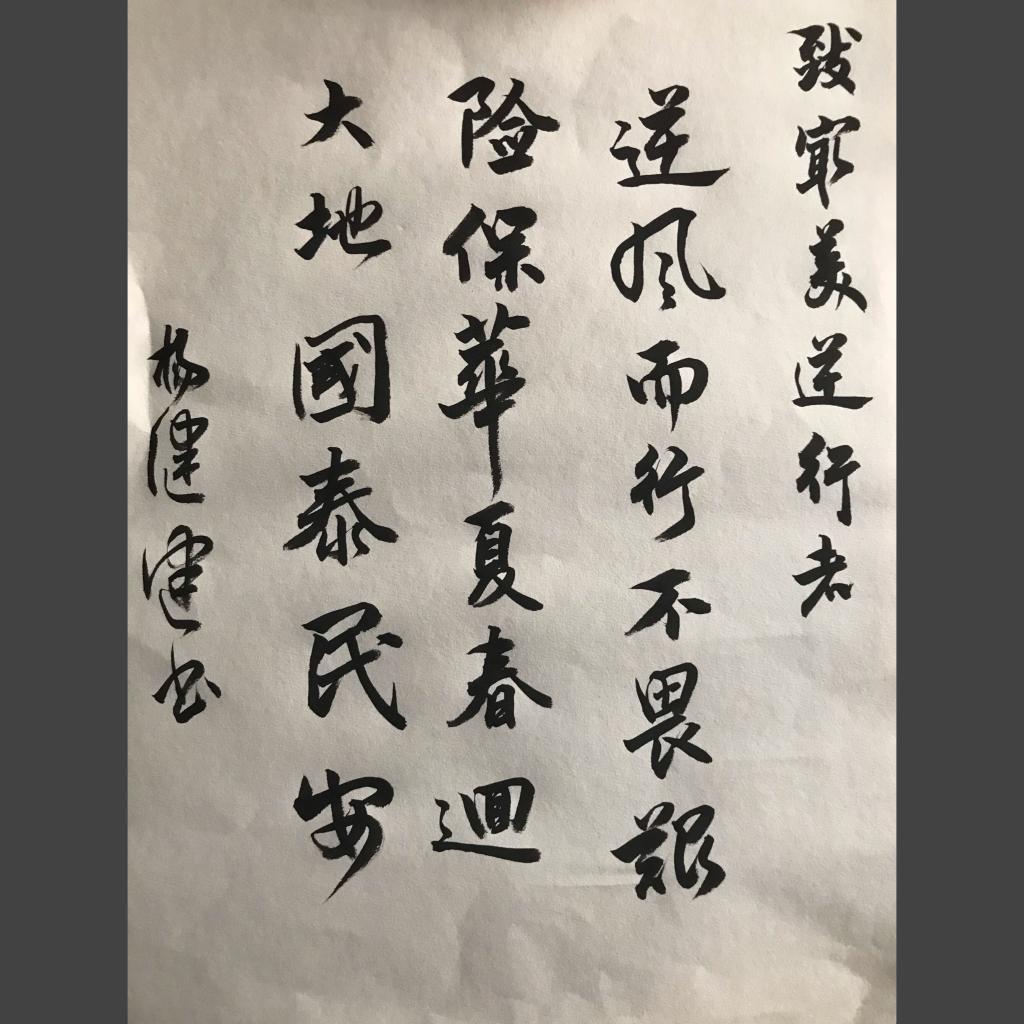 致最美逆行者
逆风而行不畏艱
险保華夏春迴
大地國泰民安
杨健健书